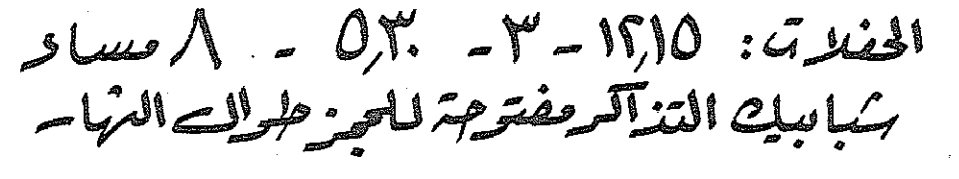 الحفلات: ١٢,١٥ - ٣ - ٥,٣٠ - ٨ مساء
شبابيك التذاكر مفتوحة للحجز طوال النهار